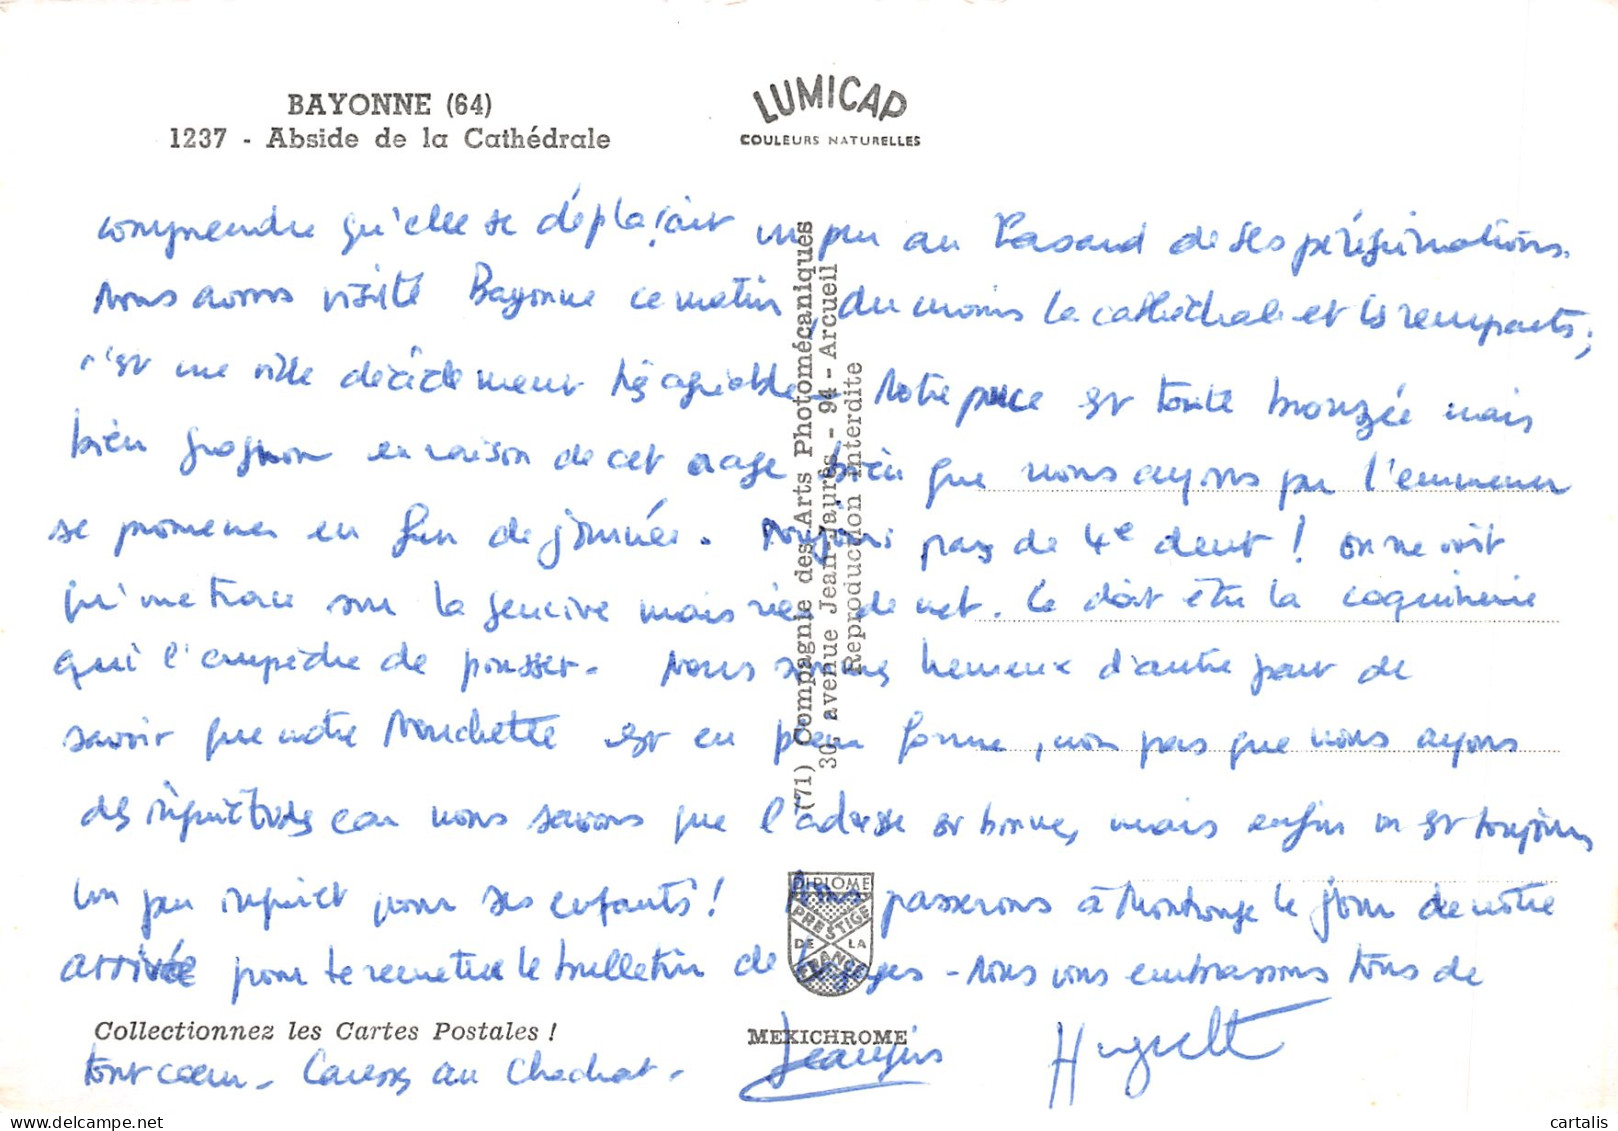 BAYONNE (64)
1237 - Abside de la Cathédrale
LUMICAP
COULEURS NATURELLES
comprendre qu'elle se déplaçait un peu au hasard de ses pérégrinations.
Nous avons visité Bayonne ce matin, du moins la cathédrale et les remparts;
c'est une ville décidément très agréable - Notre puce est toute bronzée mais
bien grognon en raison de cet orage bien que nous ayons pu l'emmener
se promener en fin de journée. Toujours pas de 4e dent ! on ne voit
qu'une trace sur la gencive mais rien de net. Ce doit être la coquinerie
qui l'empêche de pousser. Nous sommes heureux d'autre part de
savoir que notre Nouchette est en pleine forme, non pas que nous ayons
des inquiétudes car nous savons que l'adresse est bonne, mais enfin on est toujours
un peu inquiet pour ses enfants ! Nous passerons à Montrouge le jour de notre
arrivée pour te remettre le bulletin de bagages - Nous vous embrassons tous de
tout coeur - Caresses au Chachat.
Huguette
(71) Compagnie des Arts Photomécaniques
30, avenue Jean-Jaurès - 94 - Arcueil
Reproduction interdite
DIPLOME
PRESTIGE
DE LA
FRANCE
Collectionnez les Cartes Postales !
MEXICHROME
cartalis
www.delcampe.net